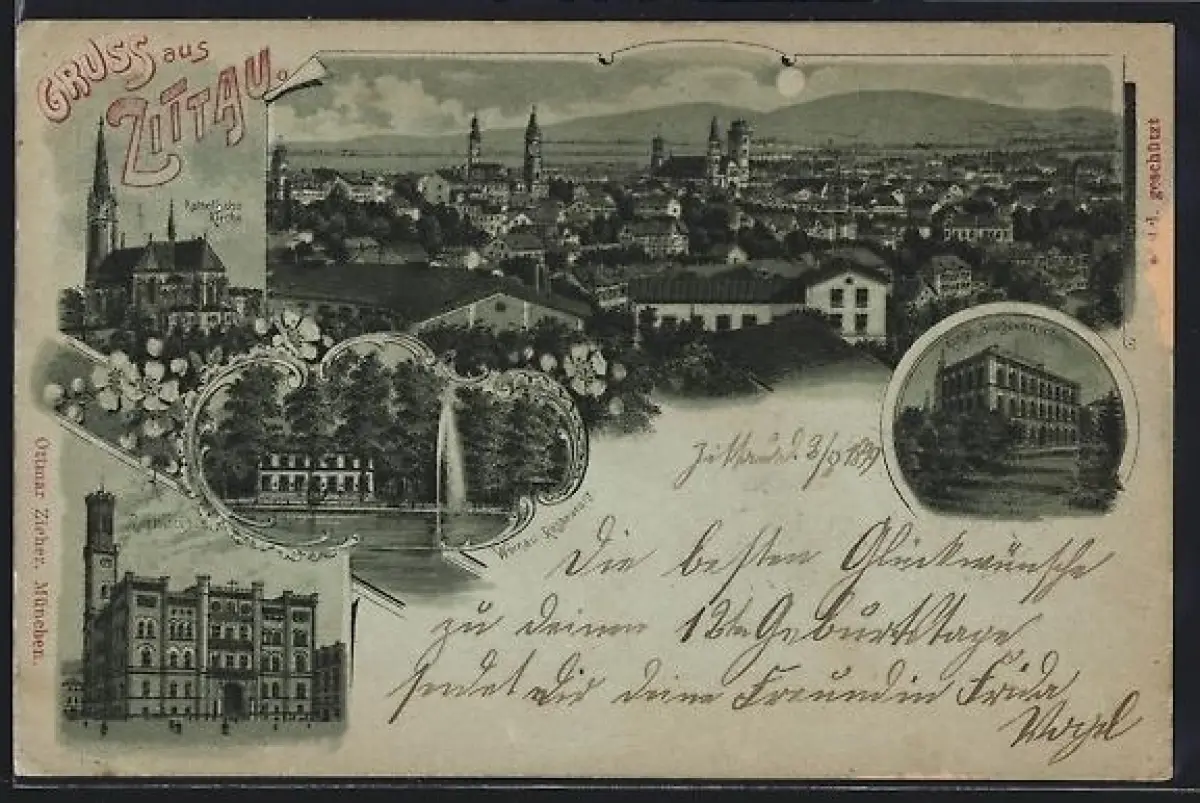 GRUSS aus
ZITTAU.
Katholische
Kirche
Weinau Restaurant
geschützt
Ottmar Zieher, München.
Zittau d. 2/9 1899
Die besten Glückwünsche
zu deinem 12ten Geburtstage
sendet dir deine Freundin Frida